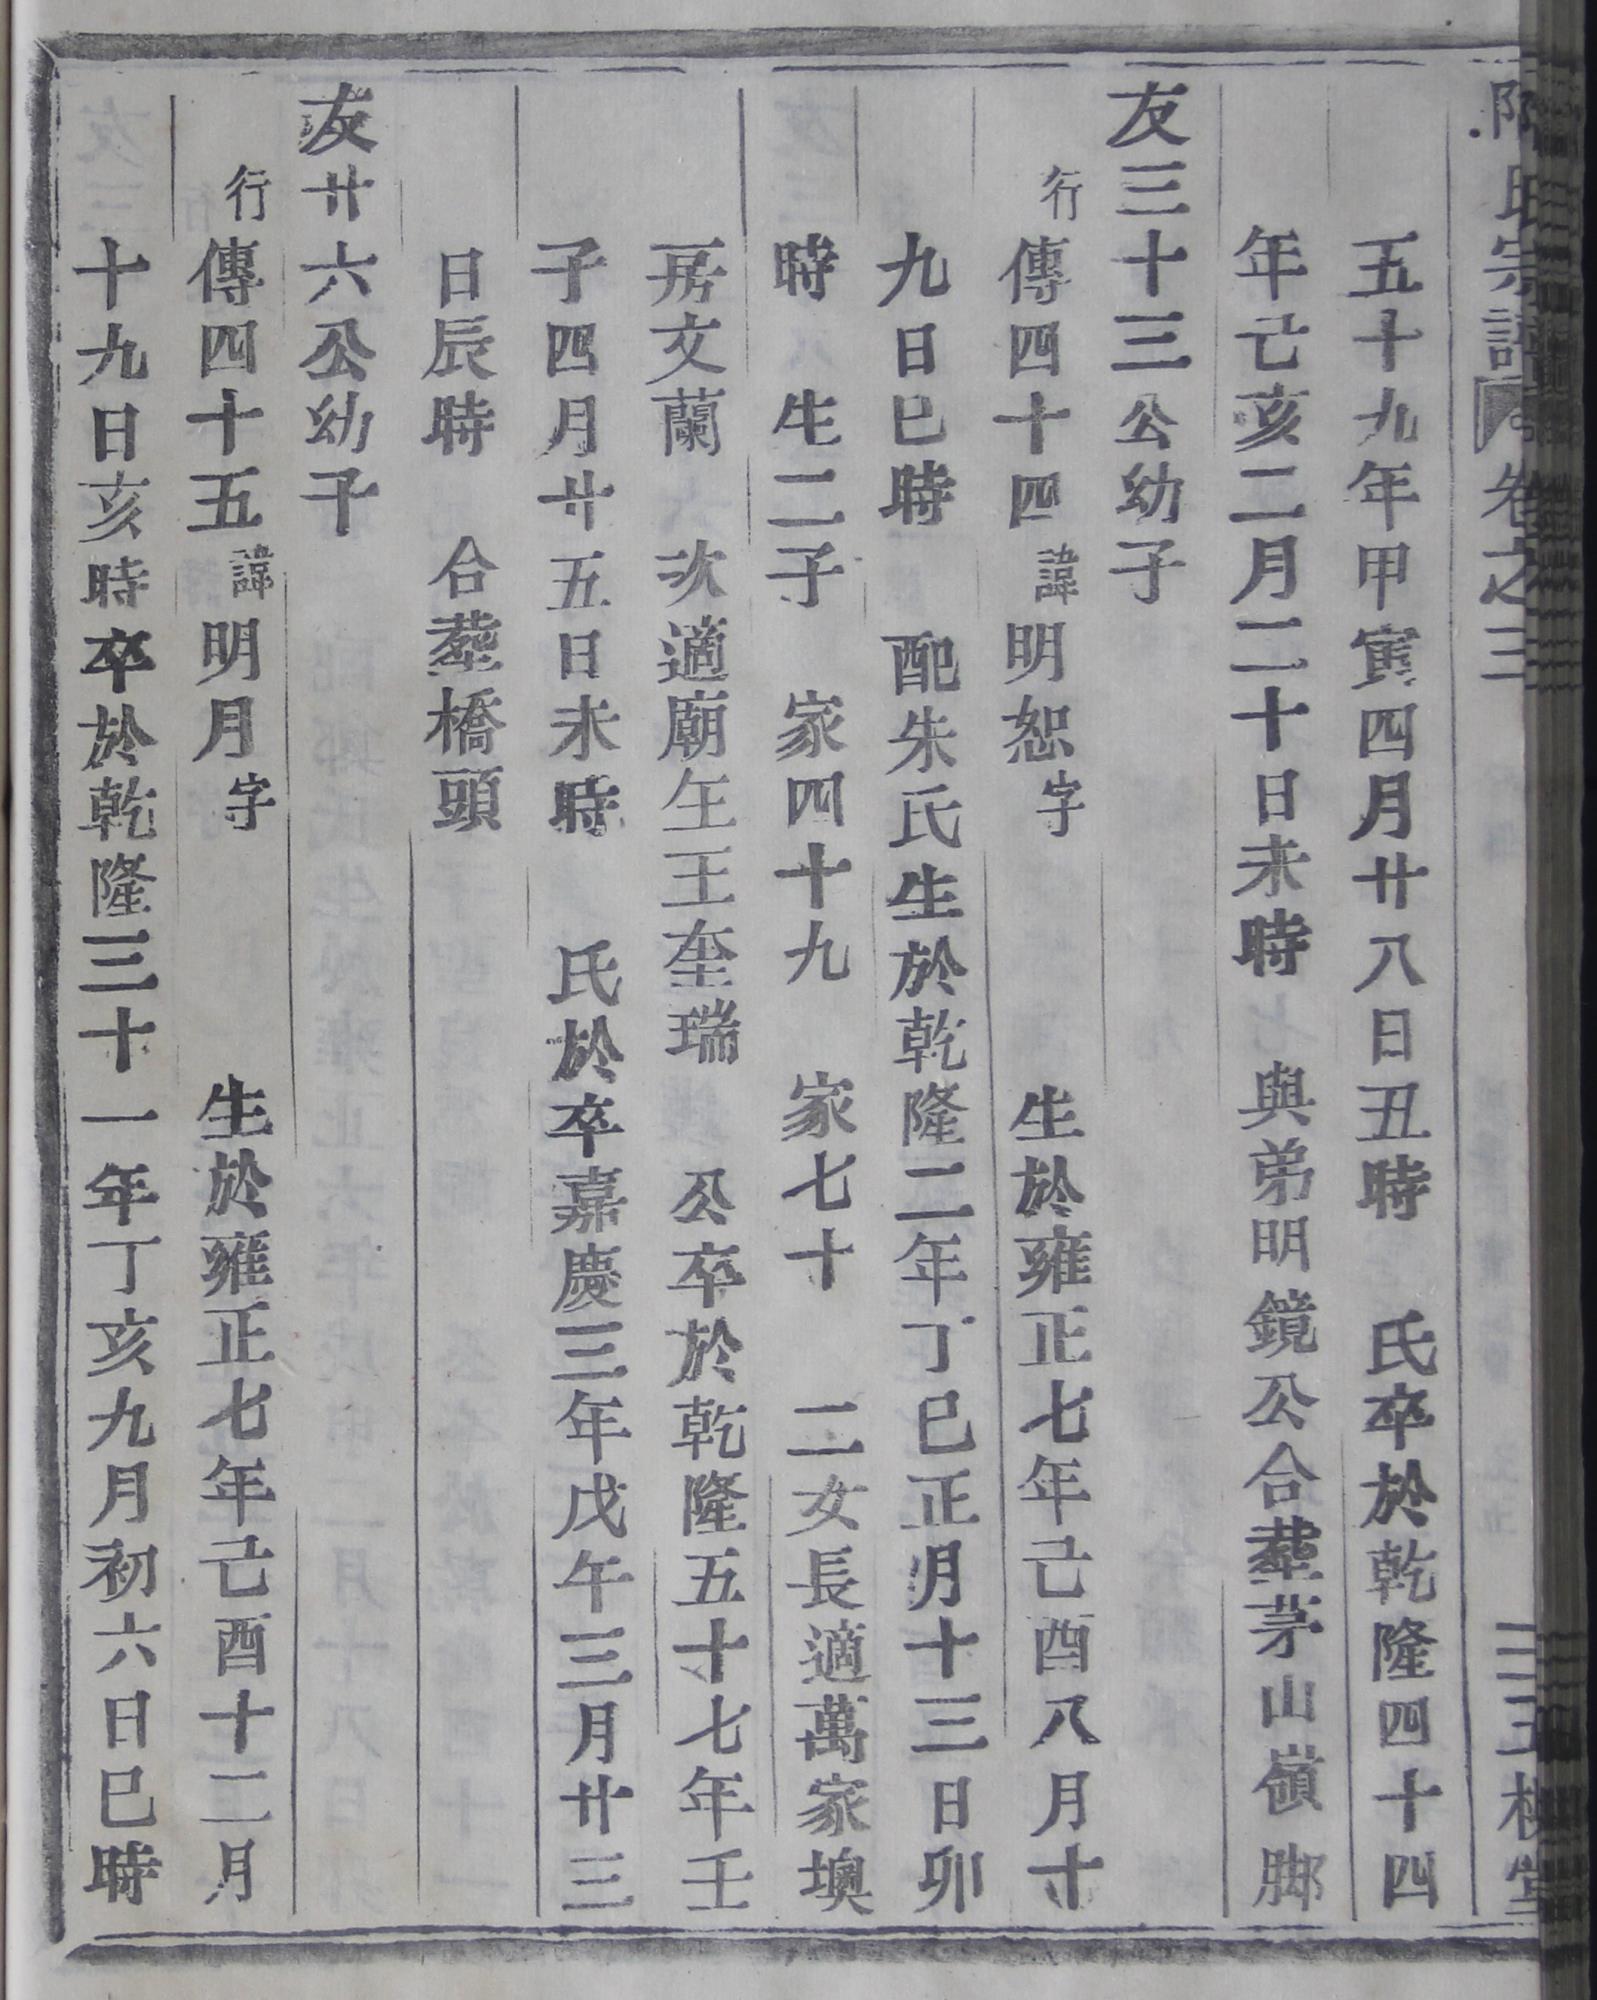 氏宗譜 卷之三 三
五十九年甲寅四月廿八日丑時 氏卒於乾隆四十四
年己亥二月二十日未時 與弟明鏡公合塟茅山嶺脚
友三十三公幼子
行傳四十四諱明恕字 生於雍正七年己酉八月寸
九日巳時 配朱氏生於乾隆二年丁巳正月十三日卯
時 生二子 家四十九 家七十 二女長適萬家墺
房文蘭 次適廟午王奎瑞 公卒於乾隆五十七年壬
子四月廿五日未時 氏於卒嘉慶三年戊午三月廿三
日辰時 合塟橋頭
友廿六公幼子
行傳四十五諱明月字 生於雍正七年己酉十二月
十九日亥時卒於乾隆三十一年丁亥九月初六日巳時